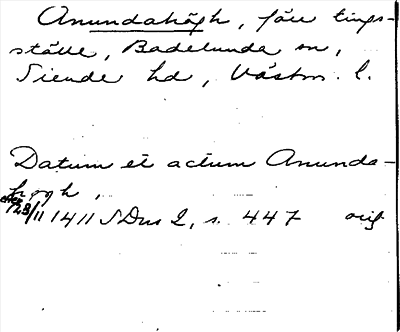 Anundahögh, förr tings-
ställe, Badelunda sn,
Siende hd, Västm. l.
Datum et actum Anunda-
högh,
23/11 1411 SDns 2, s. 447 orig